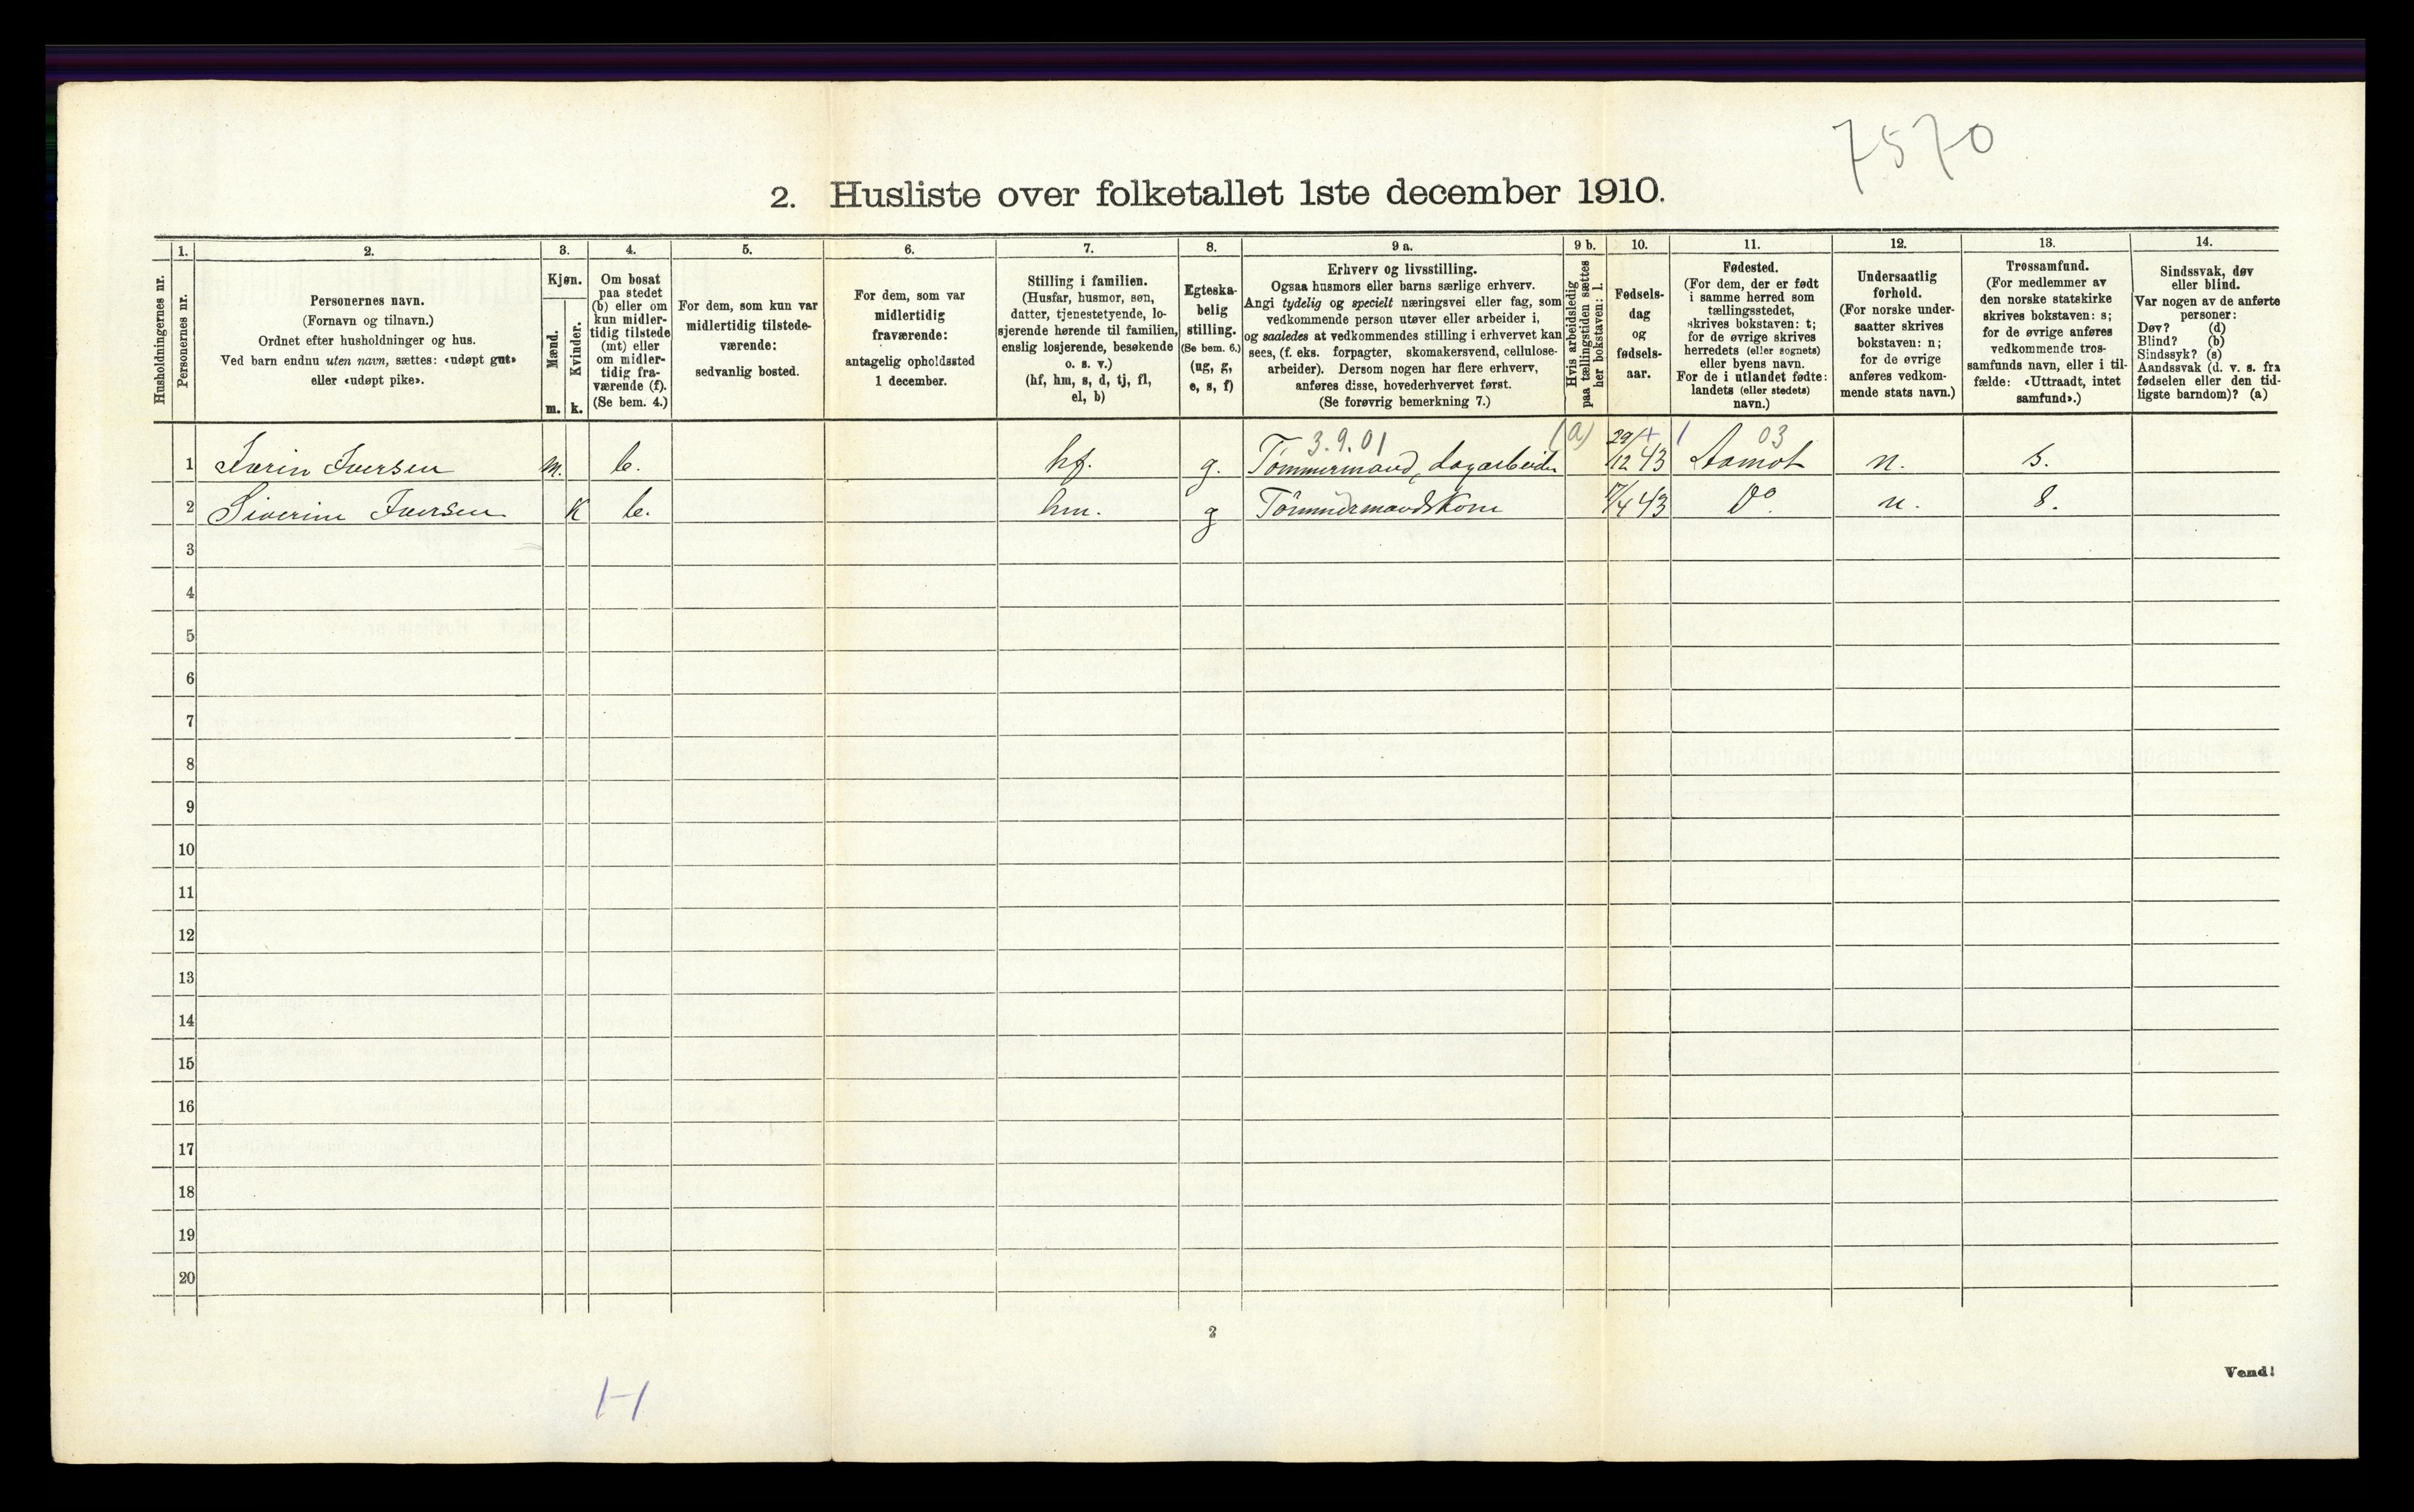 7570
2. Husliste over folketallet 1ste december 1910.
Husholdningernes nr.
1.
Personernes nr.
2.
Personernes navn.
(Fornavn og tilnavn.)
Ordnet efter husholdninger og hus.
Ved barn endnu uten navn, sættes: «udøpt gut»
eller «udøpt pike».
3.
Kjøn.
Mænd.
Kvinder.
m. k.
4.
Om bosat
paa stedet
(b) eller om
kun midler-
tidig tilstede
(mt) eller
om midler-
tidig fra-
værende (f).
(Se bem. 4.)
5.
For dem, som kun var
midlertidig tilstede-
værende:
sedvanlig bosted.
6.
For dem, som var
midlertidig
fraværende:
antagelig opholdssted
1 december.
7.
Stilling i familien.
(Husfar, husmor, søn,
datter, tjenestetyende, lo-
sjerende hørende til familien,
enslig losjerende, besøkende
o. s. v.)
(hf, hm, s, d, tj, fl,
el, b)
8.
Egteska-
belig
stilling.
(Se bem. 6.)
(ug, g,
e, s, f)
9 a.
Erhverv og livsstilling.
Ogsaa husmors eller barns særlige erhverv.
Angi tydelig og specielt næringsvei eller fag, som
vedkommende person utøver eller arbeider i,
og saaledes at vedkommendes stilling i erhvervet kan
sees, (f. eks. forpagter, skomakersvend, cellulose-
arbeider). Dersom nogen har flere erhverv,
anføres disse, hovederhvervet først.
(Se forøvrig bemerkning 7.)
9 b.
Hvis arbeidsledig
paa tællingstiden sættes
her bokstaven: l.
10.
Fødsels-
dag
og
fødsels-
aar.
11.
Fødested.
(For dem, der er født
i samme herred som
tællingsstedet,
skrives bokstaven: t;
for de øvrige skrives
herredets (eller sognets)
eller byens navn.
For de i utlandet fødte:
landets (eller stedets)
navn.)
12.
Undersaatlig
forhold.
(For norske under-
saatter skrives
bokstaven: n;
for de øvrige
anføres vedkom-
mende stats navn.)
13.
Trossamfund.
(For medlemmer av
den norske statskirke
skrives bokstaven: s;
for de øvrige anføres
vedkommende tros-
samfunds navn, eller i til-
fælde: «Uttraadt, intet
samfund».)
14.
Sindssvak, døv
eller blind.
Var nogen av de anførte
personer:
Døv? (d)
Blind? (b)
Sindssyk? (s)
Aandssvak (d. v. s. fra
fødselen eller den tid-
ligste barndom)? (a)
3.9.01 (a) 03
1 Iversen m. b. hf. g. Tømmermand, dagarbeider 29/12 43 Aamot n. s.
2 Siverine Iversen k b. hm. g Tømmermandskone /4 43 Do. n. s.
3
4
5
6
7
8
9
10
11
12
13
14
15
16
17
18
19
20
2
Vend!
H